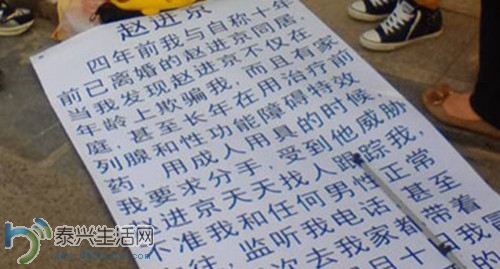 赵进京
四年前我与自称十年
前已离婚的赵进京同居，
当我发现赵进京不仅在
年龄上欺骗我，而且有家
庭，甚至长年在用治疗前
列腺和性功能障碍特效
药，用成人用具的时候，
我要求分手，受到他威胁
赵进京天天找人跟踪我，
不准我和任何男性正常
往，监听我电话，甚至
次去我家都带着
日
十
泰兴生活网